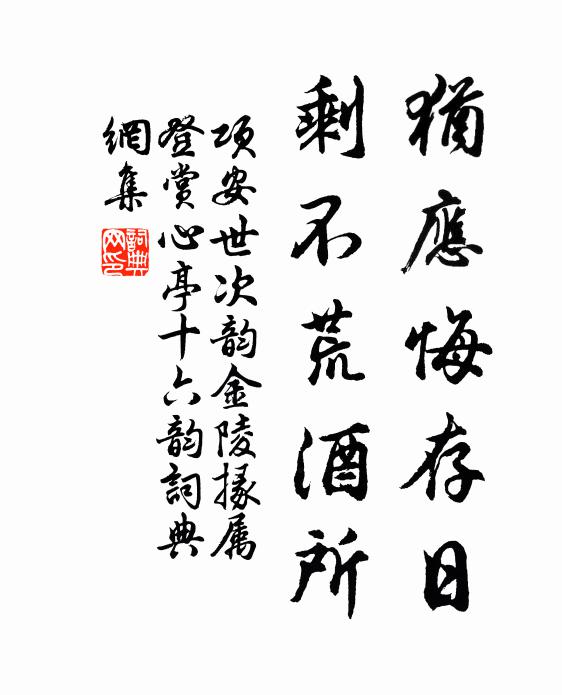 猶應悔存日
剩不荒酒所
項安世次韵金陵掾属
登賞心亭十六韵詞典
網集
詞典
网印